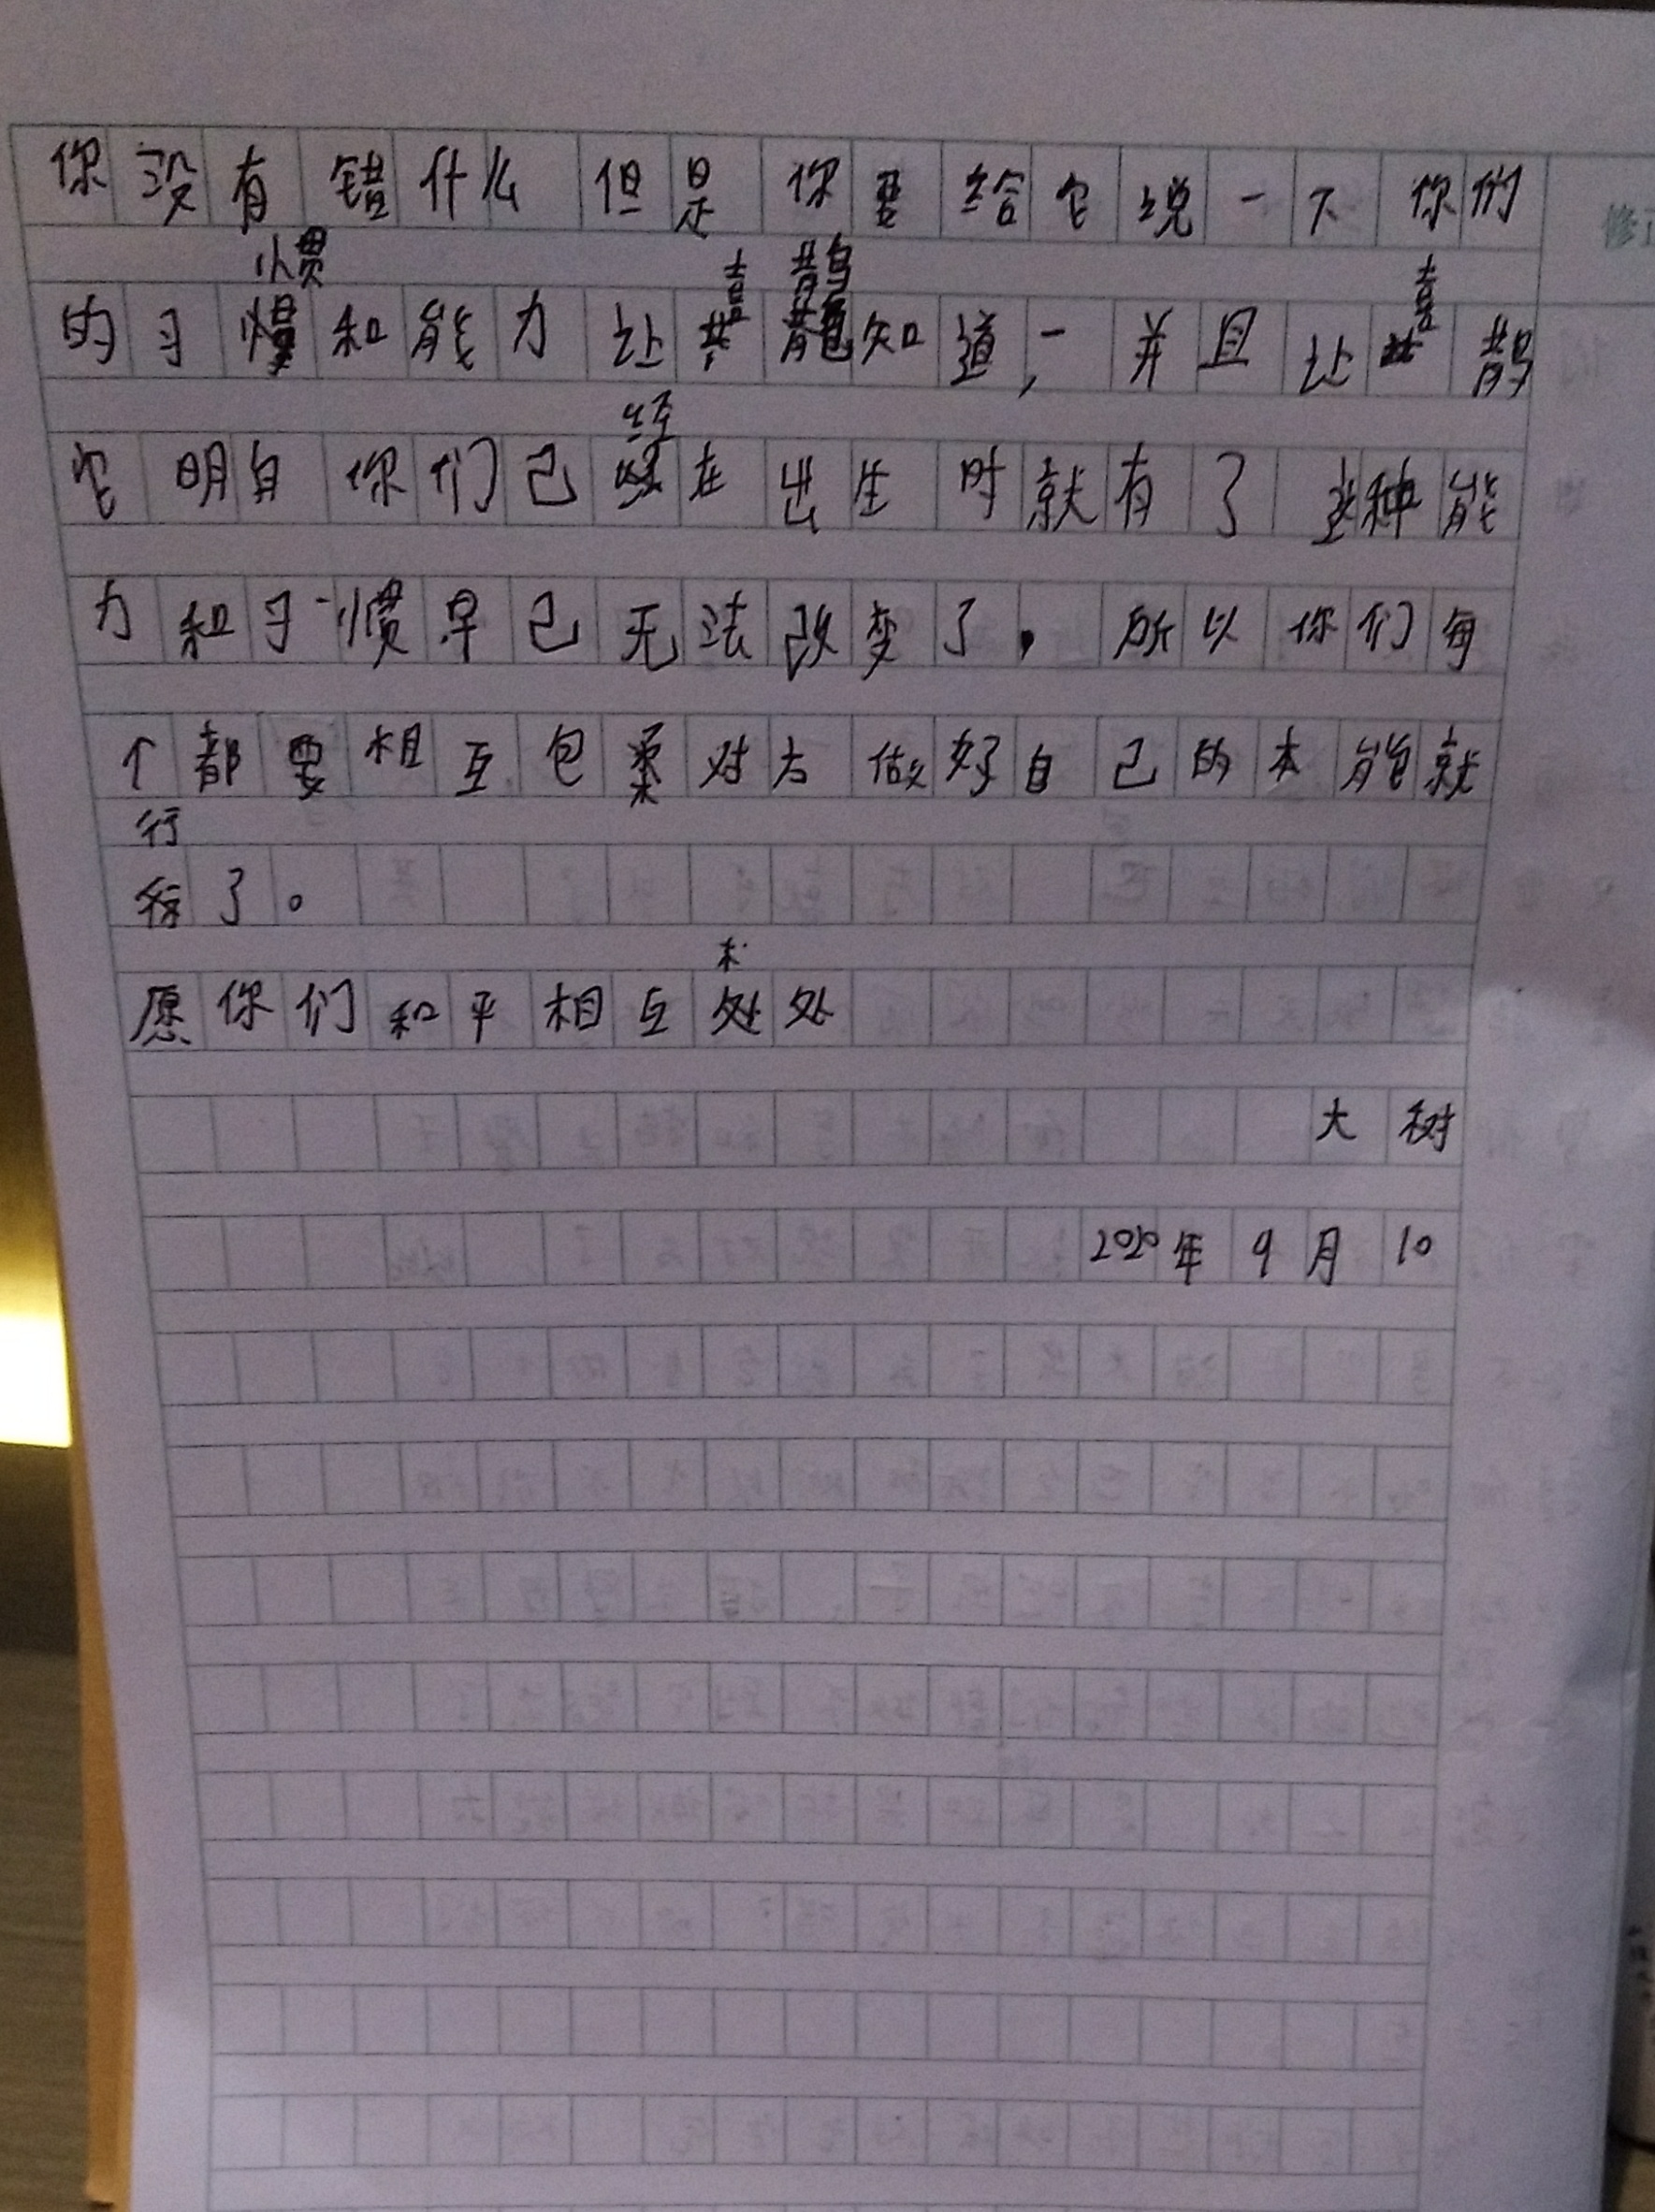 你没有错什么但是你要给它说一下你们
修正
惯 喜鹊 喜
的习惯和能力让喜鹊知道,并且让喜鹊
经
它明白你们已经在出生时就有了这种能
力和习惯早已无法改变了,所以你们每
个都要相互包裹对方做好自己的本能就
行
行了。
愿你们和平相互处处
大树
2020年9月10